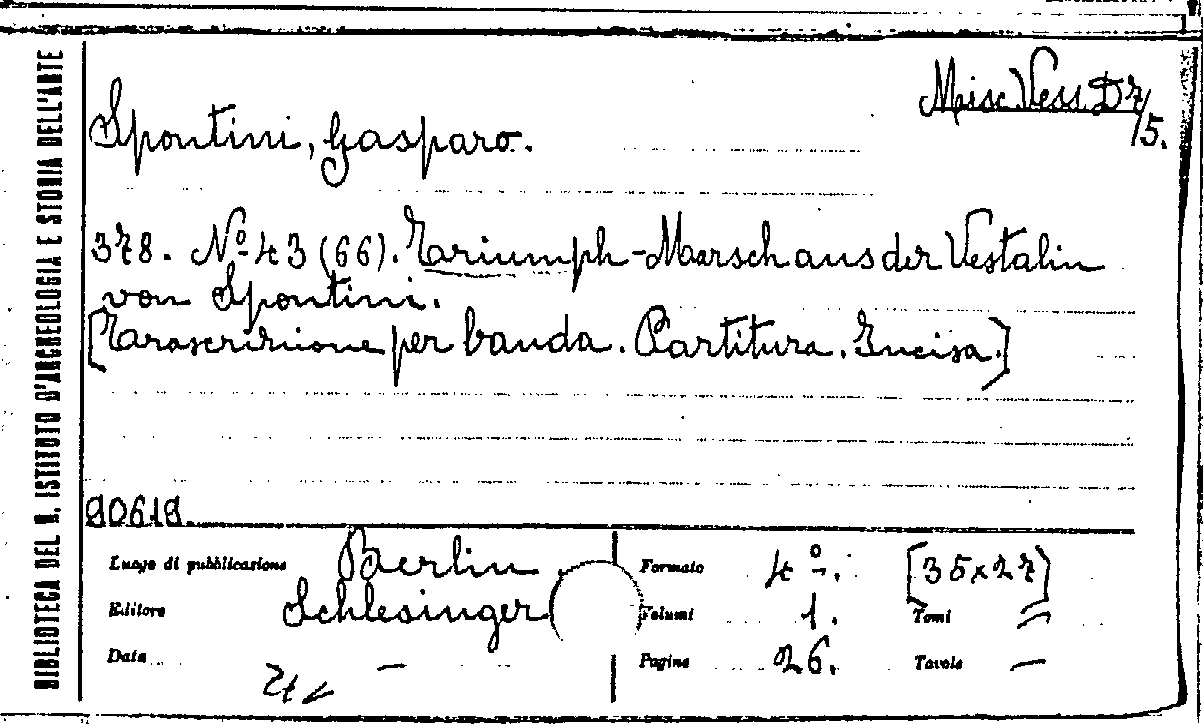 BIBLIOTECA DEL R. ISTITUTO D'ARCHEOLOGIA E STORIA DELL'ARTE
Misc. Vess. D7/5.
Spontini, Gasparo.
378. Nº 43 (66). Triumph-Marsch aus der Vestalin
von Spontini.
[Trascrizione per banda. Partitura. Incisa.]
90618.
Luogo di pubblicazione Berlin
Editore Schlesinger
Data —
Formato 4º. [35x27]
Volumi 1. Tomi =
Pagine 26. Tavole —